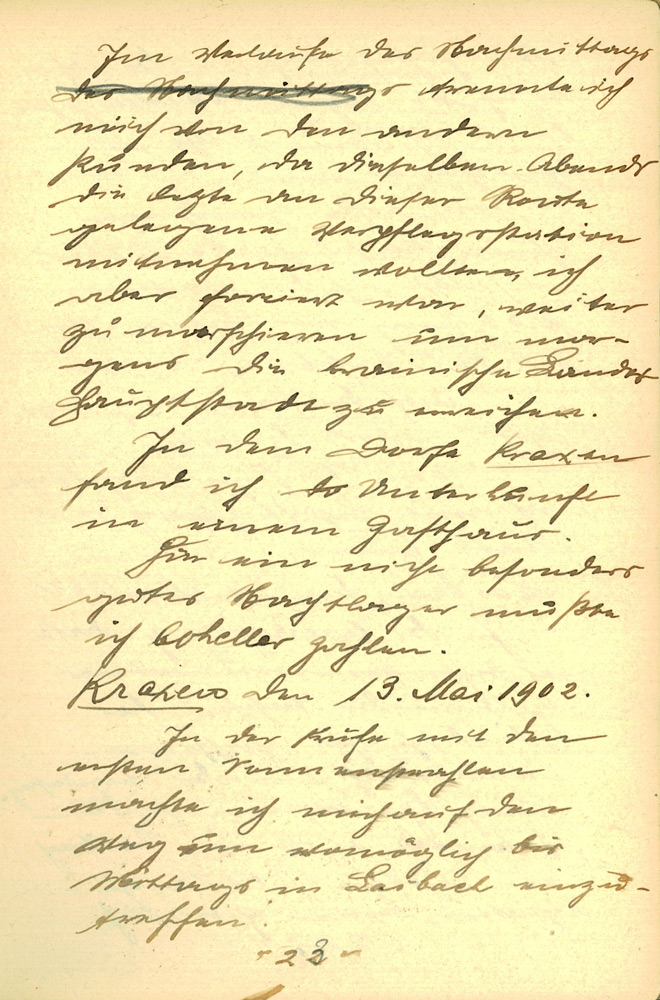 Im Verlaufe des Nachmittags
des Nachmittags trennte ich
mich von den andern
Kunden, da dieselben Abends
die letzte an dieser Route
gelegene Verpflegsstation
mitnehmen wollten, ich
aber forciert war, weiter
zu marschieren um mor-
gens die krainische Landes
Hauptstadt zu erreichen.
In dem Dorfe Kraxen
fand ich Unterkunft
in einem Gasthaus.
Für ein nicht besonders
gutes Nachtlager mußte
ich 60 heller zahlen.
Kraxen den 13. Mai 1902.
In der Fruhe mit den
ersten Sonnenstrahlen
machte ich mich auf den
Weg um womöglich bis
Mittags in Laibach einzu-
treffen.
- 23 -